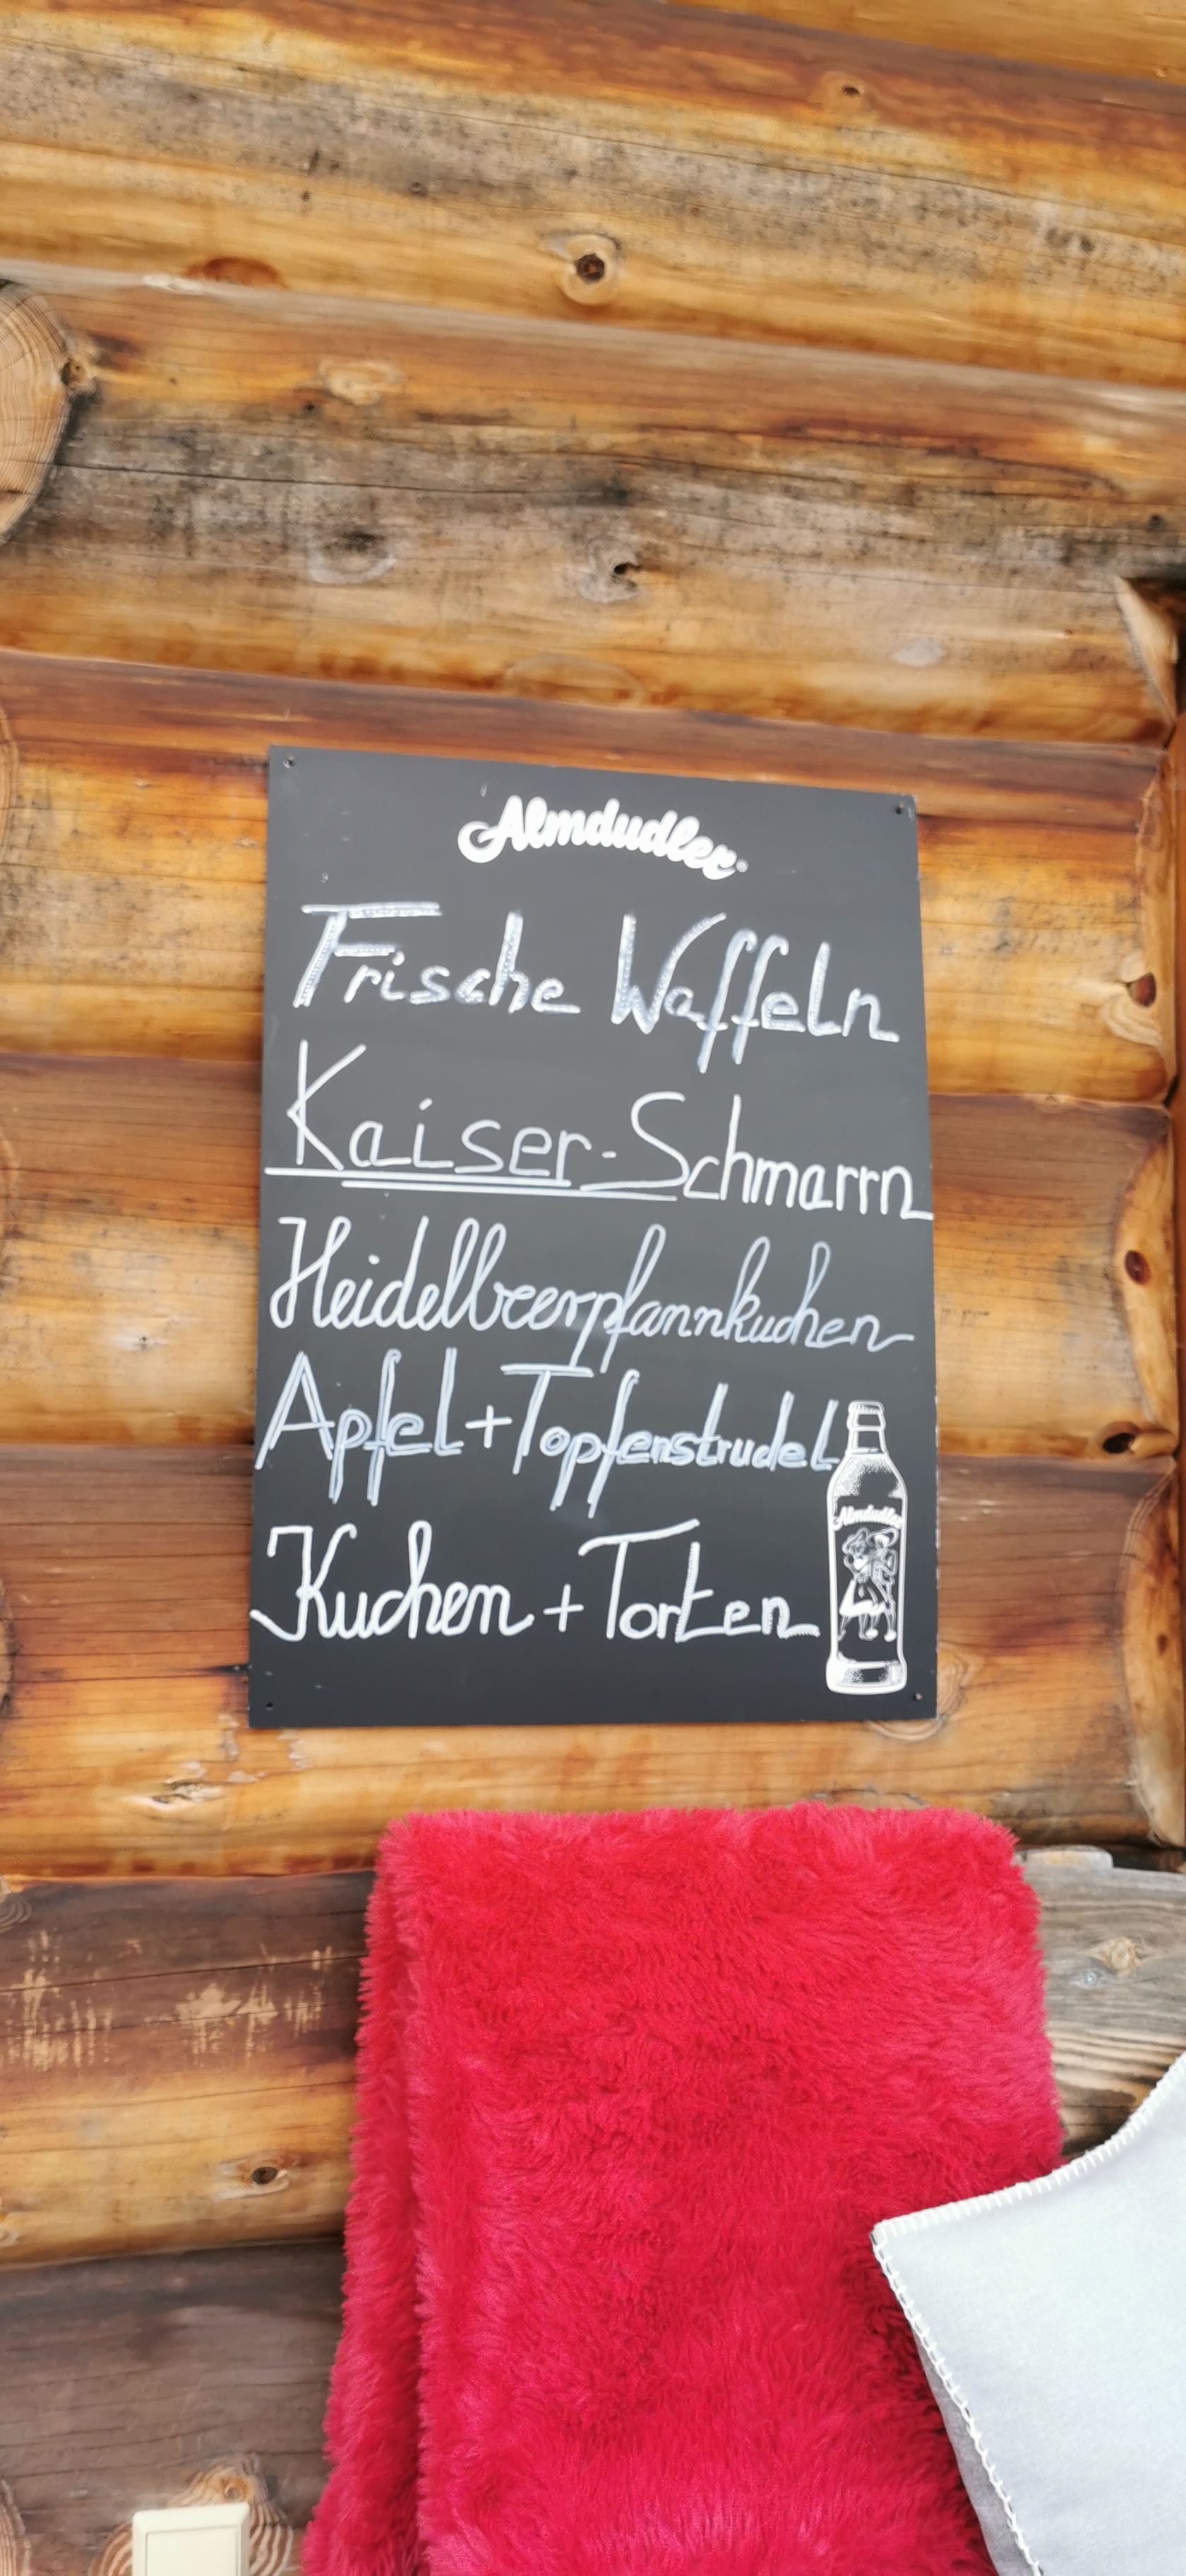 Almdudler
Frische Waffeln
Kaiser-Schmarrn
Heidelbeerpfannkuchen
Apfel+Topfenstrudel
Almdudler
Kuchen + Torten